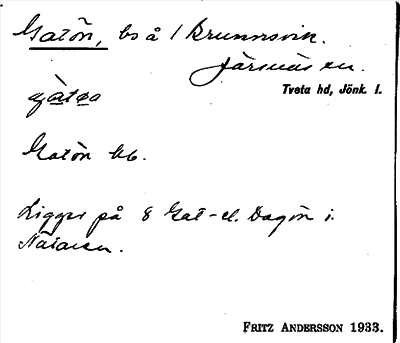 Gatön, bs å 1 Brunnsvik.
Järsnäs sn.
Tveta hd, Jönk. l.
Gatön kb.
Ligger på ö Gat- el. Dagön i
Näsasen.
FRITZ ANDERSSON 1933.